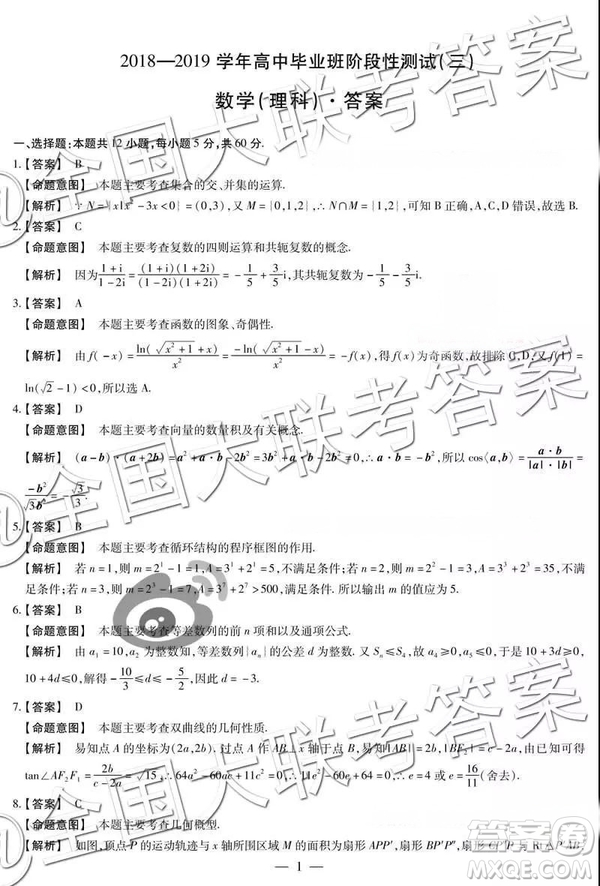 2018—2019 学年高中毕业班阶段性测试(三)
数学(理科)·答案
一、选择题:本题共12小题,每小题5分,共60分.
1.【答案】 B
【命题意图】 本题主要考查集合的交、并集的运算.
【解析】 ∵N={x|x²-3x<0}=(0,3),又M={0,1,2},∴N∩M={1,2},可知B正确,A,C,D错误.故选B.
2.【答案】 C
【命题意图】 本题主要考查复数的四则运算和共轭复数的概念.
【解析】 因为(1+i)/(1-2i)=(1+i)(1+2i)/((1-2i)(1+2i))=-1/5+3/5i,其共轭复数为-1/5-3/5i.
3.【答案】 A
【命题意图】 本题主要考查函数的图象、奇偶性.
【解析】 由f(-x)=ln(√(x²+1)+x)/x²=-ln(√(x²+1)-x)/x²=-f(x),得f(x)为奇函数,故排除C,D,又f(1)=
ln(√2-1)<0,所以选A.
4.【答案】 D
【命题意图】 本题主要考查向量的数量积及有关概念.
【解析】 (a-b)·(a+2b)=a²+a·b-2b²=3b²+a·b-2b²=0,∴a·b=-b²,所以cos⟨a,b⟩=a·b/(|a|·|b|)=
-b²/(√3b²)=-√3/3.
5.【答案】 B
【命题意图】 本题主要考查循环结构的程序框图的作用.
【解析】 若n=1,则m=3¹+2¹=5,不满足条件;若n=2,则m=3²+2¹=11,不满足条件;若n=3,则m=3³+2³=35,不满
足条件;若n=5,则m=3⁵+2⁵>500,满足条件.所以输出m的值应为5.
6.【答案】 B
【命题意图】 本题主要考查等差数列的前n项和以及通项公式.
【解析】 由a₁=10,a₂为整数知,等差数列{aₙ}的公差d为整数.又Sₙ≤S₄,故a₄≥0,a₅≤0,于是10+3d≥0,
10+4d≤0,解得-10/3≤d≤-5/2,因此d=-3.
7.【答案】 D
【命题意图】 本题主要考查双曲线的几何性质.
【解析】 易知点A的坐标为(2a,2b).过点A作AB⊥x轴于点B.易知|AB|=2b,|BF₂|=c-2a,由已知可得
tan∠AF₂F₁=2b/(c-2a)=√15,∴64a²-64ac+11c²=0,∴11e²-64e+64=0,∴e=4或e=16/11(舍去).
8.【答案】 C
【命题意图】 本题主要考查几何概型.
【解析】 如图,顶点P的运动轨迹与x轴所围区域M的面积为扇形APP′,扇形BP′P″,
— 1 —
@全国大联考答案